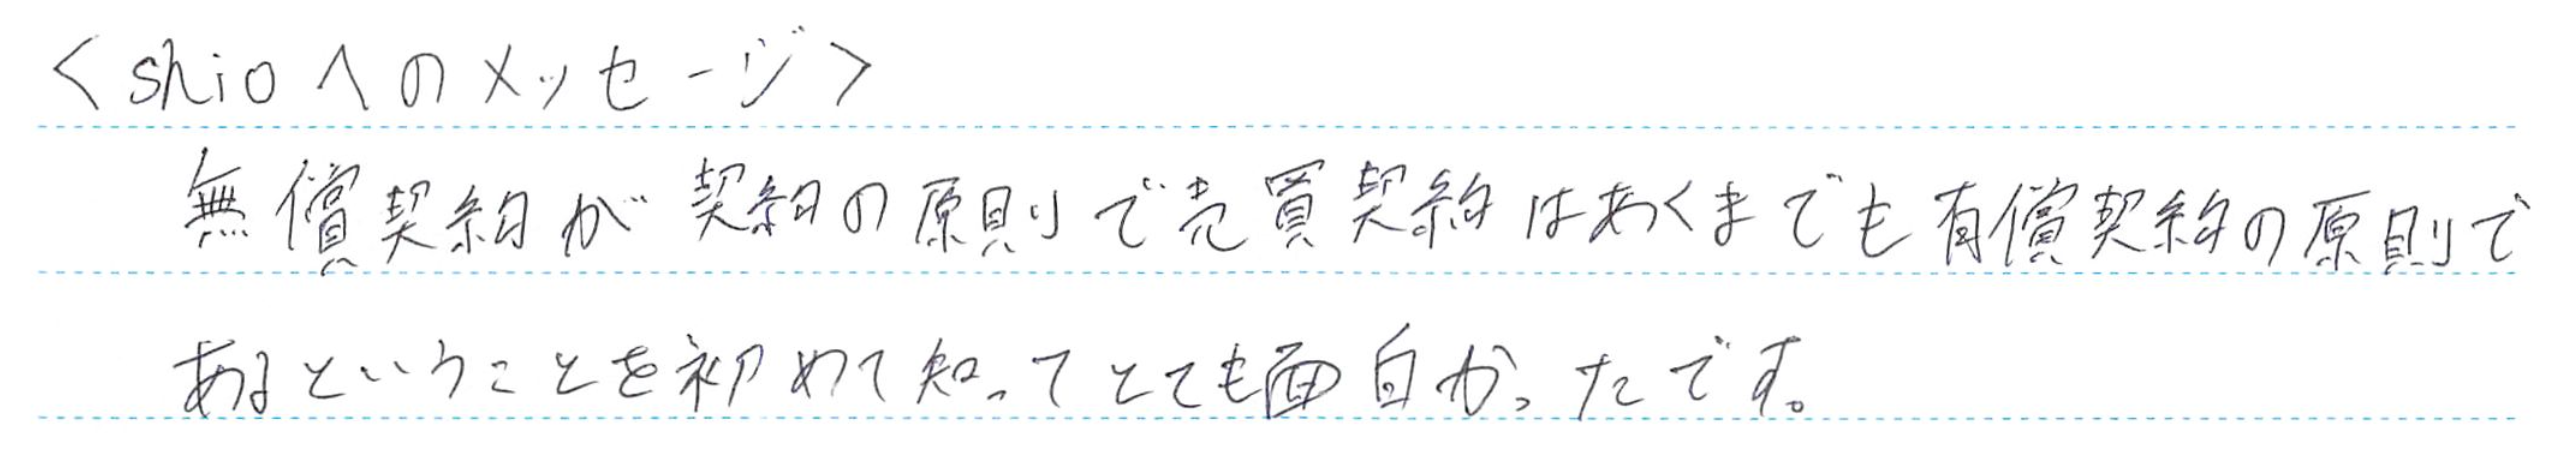 <shioへのメッセージ>
無償契約が契約の原則で売買契約はあくまでも有償契約の原則で
あるということを初めて知ってとても面白かったです。